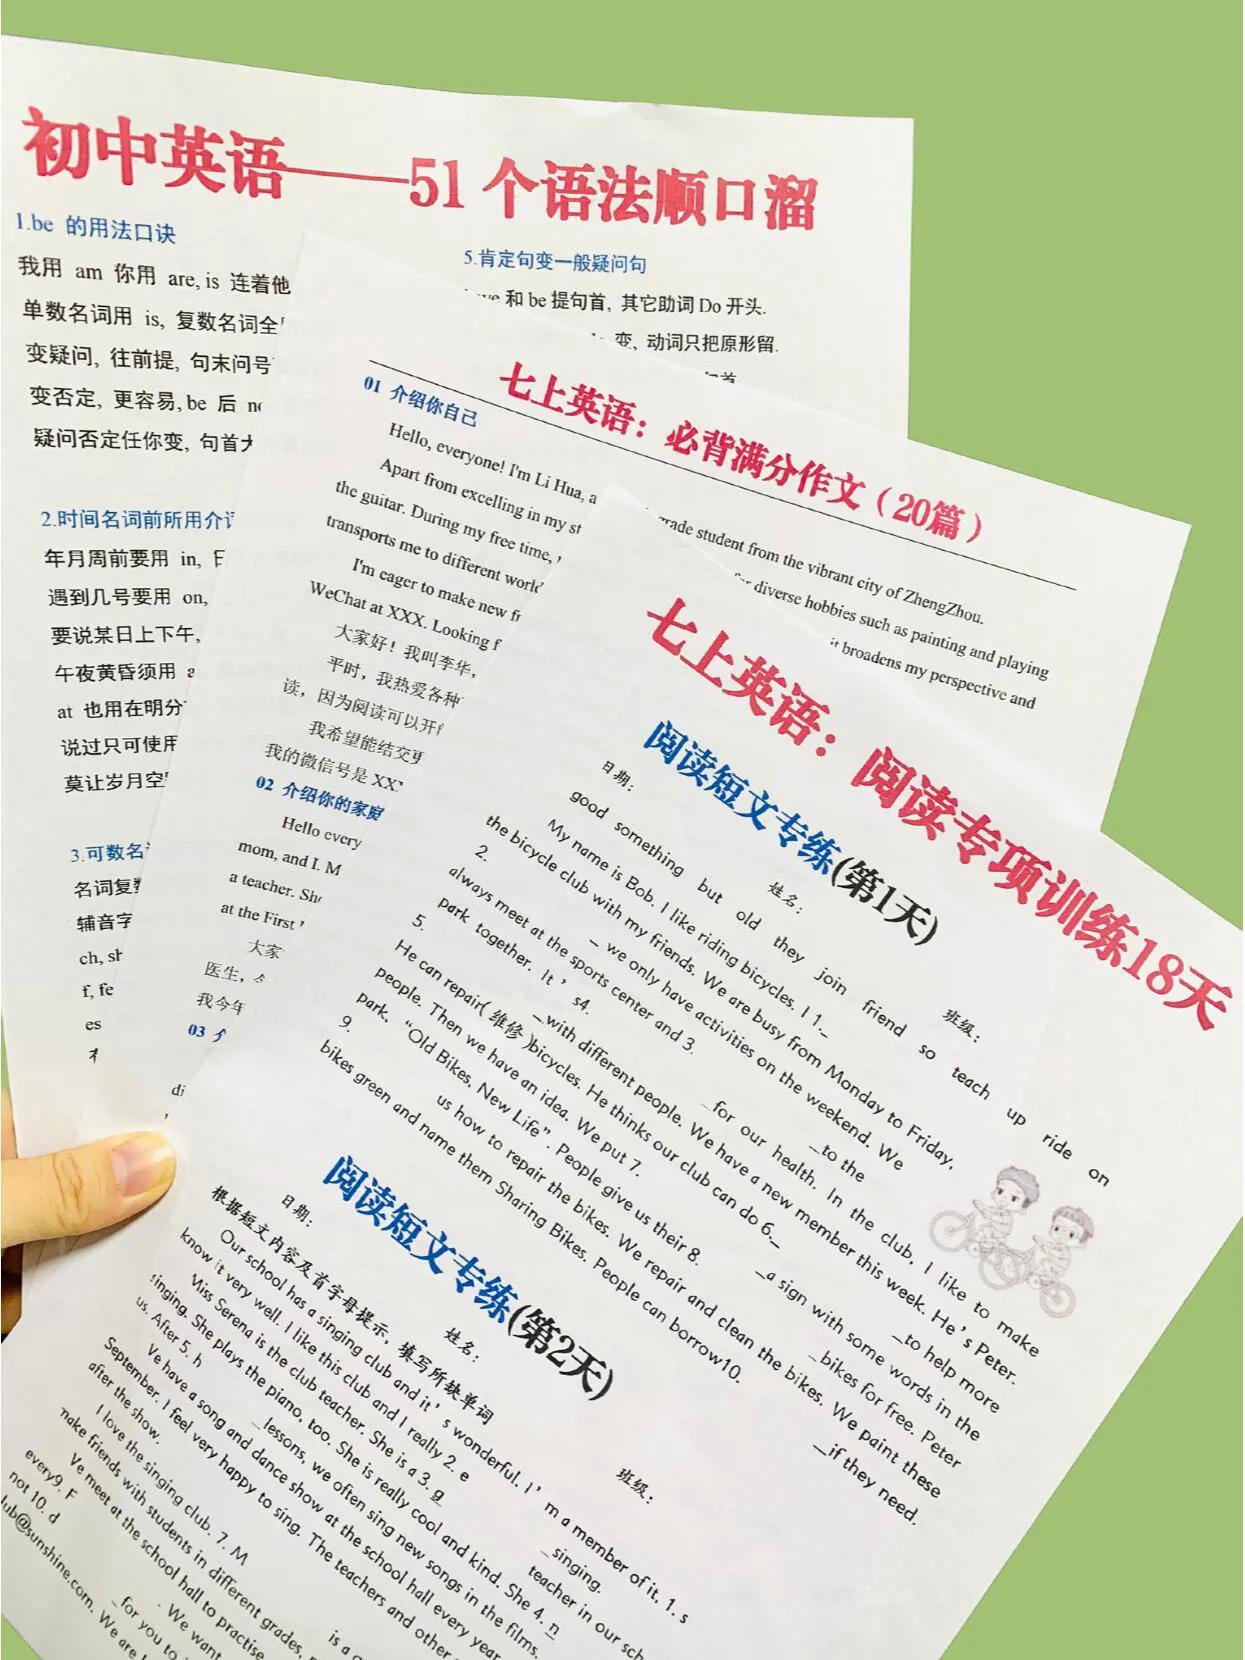 初中英语——51 个语法顺口溜
1.be 的用法口诀
我用 am 你用 are, is 连着他
单数名词用 is, 复数名词全
变疑问, 往前提, 句末问号
变否定, 更容易, be 后
疑问否定任你变, 句首
2.时间名词前所用介词
年月周前要用 in,
遇到几号要用 on,
要说某日上下午,
午夜黄昏须用
at 也用在明分
说过只可使用
莫让岁月空
3.可数名
名词复数
辅音字
ch, sh
f, fe
es
5.肯定句变一般疑问句
和 be 提句首, 其它助词 Do 开头.
变, 动词只把原形留.
七上英语：必背满分作文（20篇）
01 介绍你自己
Hello, everyone! I'm Li Hua, a
grade student from the vibrant city of ZhengZhou.
Apart from excelling in my st
diverse hobbies such as painting and playing
the guitar. During my free time,
it broadens my perspective and
transports me to different world
I'm eager to make new fr
WeChat at XXX. Looking f
大家好！我叫李华，
平时，我热爱各种
读，因为阅读可以开
我希望能结交更
我的微信号是 XX
02 介绍你的家庭
Hello every
mom, and I. M
a teacher. She
at the First
大家
医生，
我今年
03
di
七上英语：阅读专项训练18天
阅读短文专练(第1天)
日期： 姓名： 班级：
good something but old they join friend so teach up ride on
My name is Bob. I like riding bicycles. I 1._
the bicycle club with my friends. We are busy from Monday to Friday.
2. _ we only have activities on the weekend. We
always meet at the sports center and 3. _to the
park together. It's4. _for our health. In the club, I like to make
5. _with different people. We have a new member this week. He's Peter.
He can repair(维修)bicycles. He thinks our club can do 6._ _to help more
people. Then we have an idea. We put 7. _a sign with some words in the
park, “Old Bikes, New Life”. People give us their 8. _bikes for free. Peter
9. us how to repair the bikes. We repair and clean the bikes. We paint these
bikes green and name them Sharing Bikes. People can borrow10. _if they need.
阅读短文专练(第2天)
日期： 姓名： 班级：
根据短文内容及首字母提示，填写所缺单词
Our school has a singing club and it's wonderful. I'm a member of it. 1. s
know it very well. I like this club and I really 2. e _singing.
Miss Serena is the club teacher. She is a 3. g teacher in our sch
singing. She plays the piano, too. She is really cool and kind. She 4. n
us. After 5. h _lessons, we often sing new songs in the films.
Ve have a song and dance show at the school hall every year
September. I feel very happy to sing. The teachers and other
after the show.
I love the singing club. 7. M is a
make friends with students in different grades,
Ve meet at the school hall to practise
every9. F . We want
not 10. d _for you to
lub@sunshine.com. We are